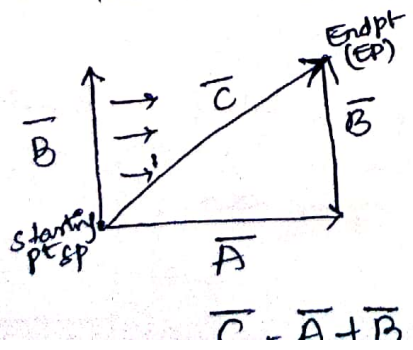 Endpt
(EP)
C̅
B̅
B̅
Starting
pt SP
A̅
C̅ = A̅ + B̅